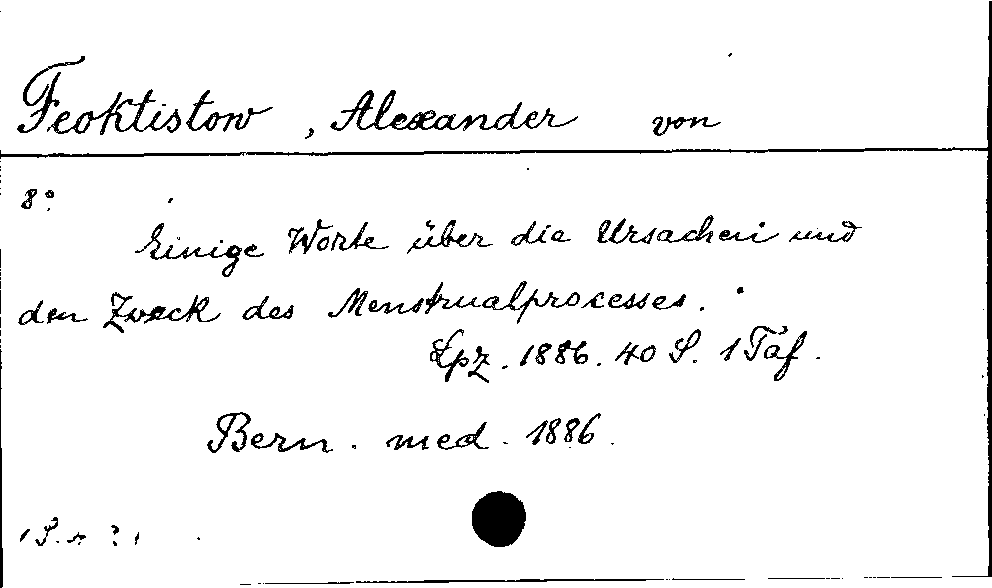 Feoktistow, Alexander von
8°
Einige Worte über die Ursachen und
den Zweck des Menstrualprocesses.
Lpz. 1886. 40 S. 1 Taf.
Bern. med. 1886.